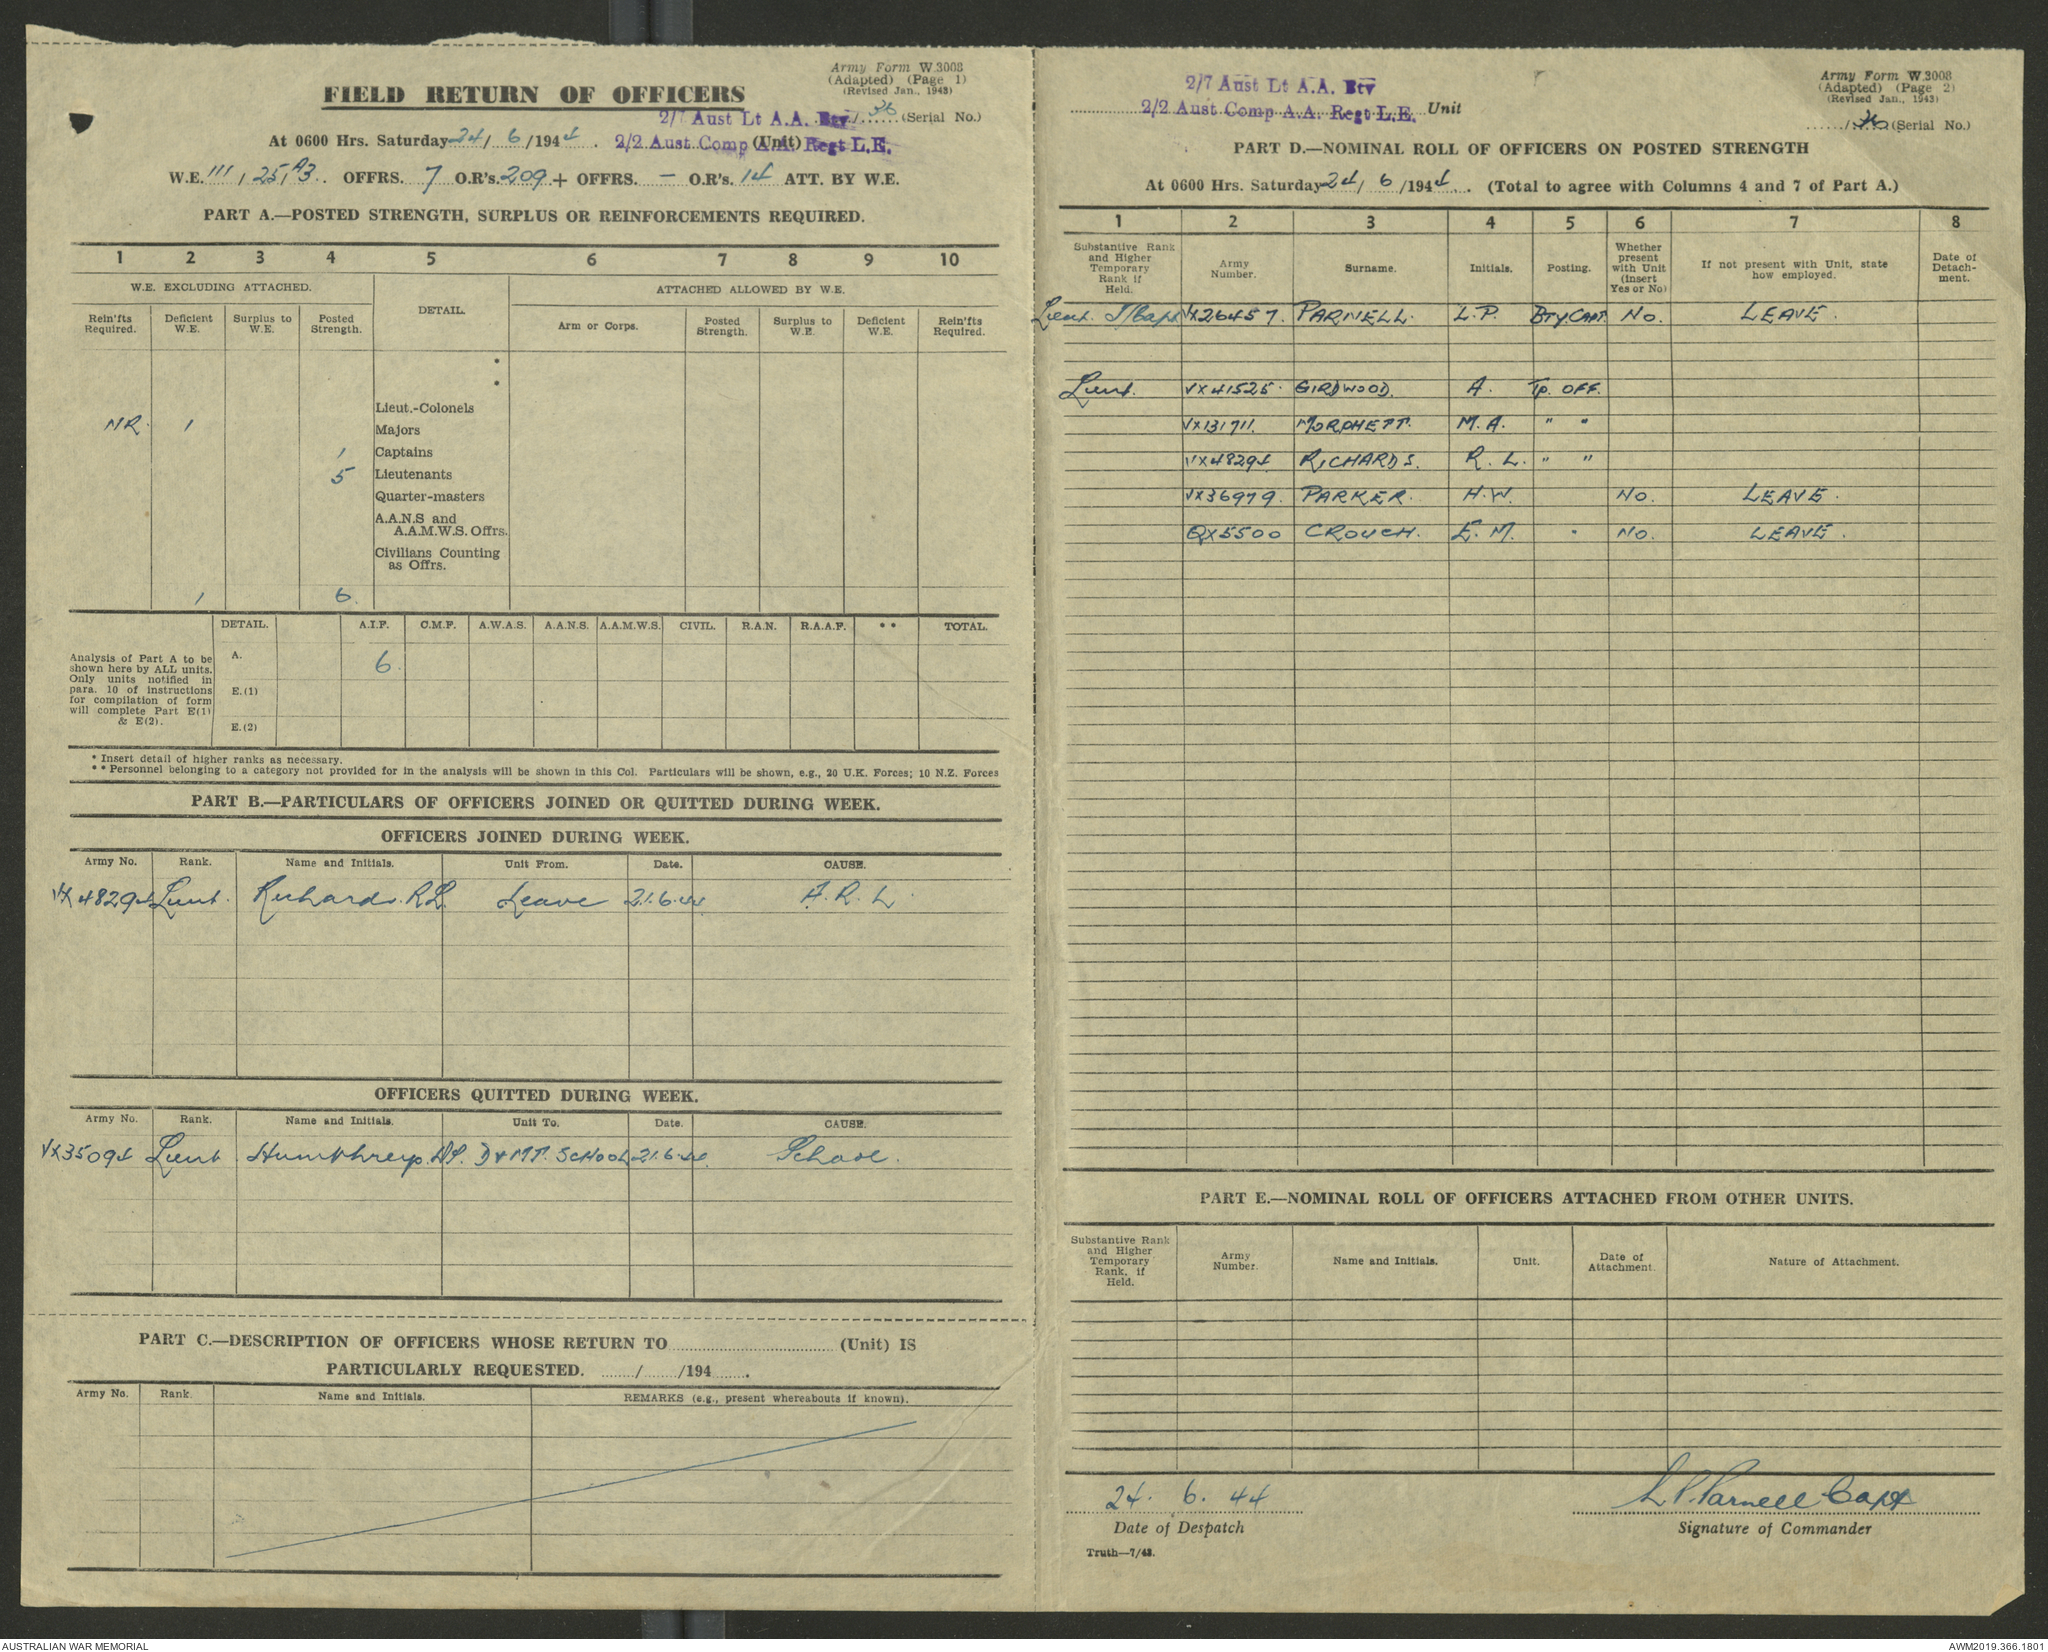 Army Form W.3008
(Adapted) (Page 1)
(Revised Jan., 1943)
FIELD RETURN OF OFFICERS
2/7 Aust Lt A.A. Bty /36 (Serial No.)
At 0600 Hrs. Saturday 24/6/1944. 2/2 Aust Comp A.A. (Unit) Regt L.E.
W.E. III/25/A3.. OFFRS. 7 O.R's. 209 + OFFRS. — O.R's. 14 ATT. BY W.E.
PART A.—POSTED STRENGTH, SURPLUS OR REINFORCEMENTS REQUIRED.
1 2 3 4 5 6 7 8 9 10
W.E. EXCLUDING ATTACHED. DETAIL. ATTACHED ALLOWED BY W.E.
Rein'fts Required. Deficient W.E. Surplus to W.E. Posted Strength. Arm or Corps. Posted Strength. Surplus to W.E. Deficient W.E. Rein'fts Required.
*
*
Lieut.-Colonels
NR. 1 Majors
1 Captains
5 Lieutenants
Quarter-masters
A.A.N.S and
A.A.M.W.S. Offrs.
Civilians Counting
as Offrs.
1 6.
DETAIL. A.I.F. C.M.F. A.W.A.S. A.A.N.S. A.A.M.W.S. CIVIL. R.A.N. R.A.A.F. ** TOTAL.
Analysis of Part A to be
shown here by ALL units.
Only units notified in
para. 10 of instructions
for compilation of form
will complete Part E(1)
& E(2).
A. 6.
E.(1)
E.(2)
* Insert detail of higher ranks as necessary.
** Personnel belonging to a category not provided for in the analysis will be shown in this Col. Particulars will be shown, e.g., 20 U.K. Forces; 10 N.Z. Forces
PART B.—PARTICULARS OF OFFICERS JOINED OR QUITTED DURING WEEK.
OFFICERS JOINED DURING WEEK.
Army No. Rank. Name and Initials. Unit From. Date. CAUSE.
VX48294 Lieut. Richards. R.L. Leave 21.6.44 A.R.L.
OFFICERS QUITTED DURING WEEK.
Army No. Rank. Name and Initials. Unit To. Date. CAUSE.
VX35094 Lieut Humphreys. D & MT. SCHOOL 21.6.44 School.
PART C.—DESCRIPTION OF OFFICERS WHOSE RETURN TO (Unit) IS
PARTICULARLY REQUESTED. / /194 .
Army No. Rank. Name and Initials. REMARKS (e.g., present whereabouts if known).
Army Form W.3008
(Adapted) (Page 2)
(Revised Jan., 1943)
2/7 Aust Lt A.A. Bty
2/2 Aust Comp A.A. Regt L.E. Unit
/36 (Serial No.)
PART D.—NOMINAL ROLL OF OFFICERS ON POSTED STRENGTH
At 0600 Hrs. Saturday 24/6/1944. (Total to agree with Columns 4 and 7 of Part A.)
1 2 3 4 5 6 7 8
Substantive Rank and Higher Temporary Rank if Held. Army Number. Surname. Initials. Posting. Whether present with Unit (insert Yes or No) If not present with Unit, state how employed. Date of Detach-ment.
Lieut. T/Capt VX26457. PARNELL. L.P. BTY.CAPT. No. LEAVE.
Lieut. VX41525. GIRDWOOD. A. Tp. OFF.
VX131711. MORPHETT. M.A. " "
VX48294 RICHARDS. R.L. " "
VX36979. PARKER. H.W. No. LEAVE.
QX5500 CROUCH. E.M. " No. LEAVE.
PART E.—NOMINAL ROLL OF OFFICERS ATTACHED FROM OTHER UNITS.
Substantive Rank and Higher Temporary Rank, if Held. Army Number. Name and Initials. Unit. Date of Attachment. Nature of Attachment.
24. 6. 44 L P Parnell Capt
Date of Despatch Signature of Commander
Truth—7/43.
AUSTRALIAN WAR MEMORIAL AWM2019.366.1801